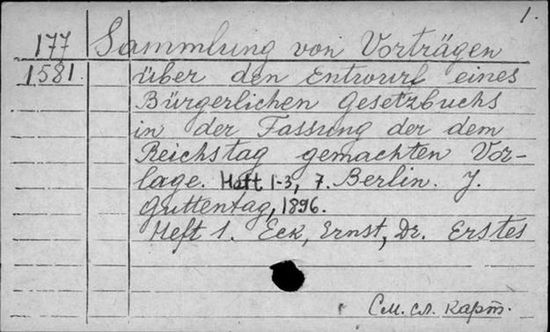 1.
177 Sammlung von Vorträgen
1581. über den Entwurf eines
Bürgerlichen Gesetzbuchs
in der Fassung der dem
Reichstag gemachten Vor-
lage. Heft 1-3, 7. Berlin. J.
Guttentag, 1896.
Heft 1. Eck, Ernst, Dr. Erstes
См. сл. карт.